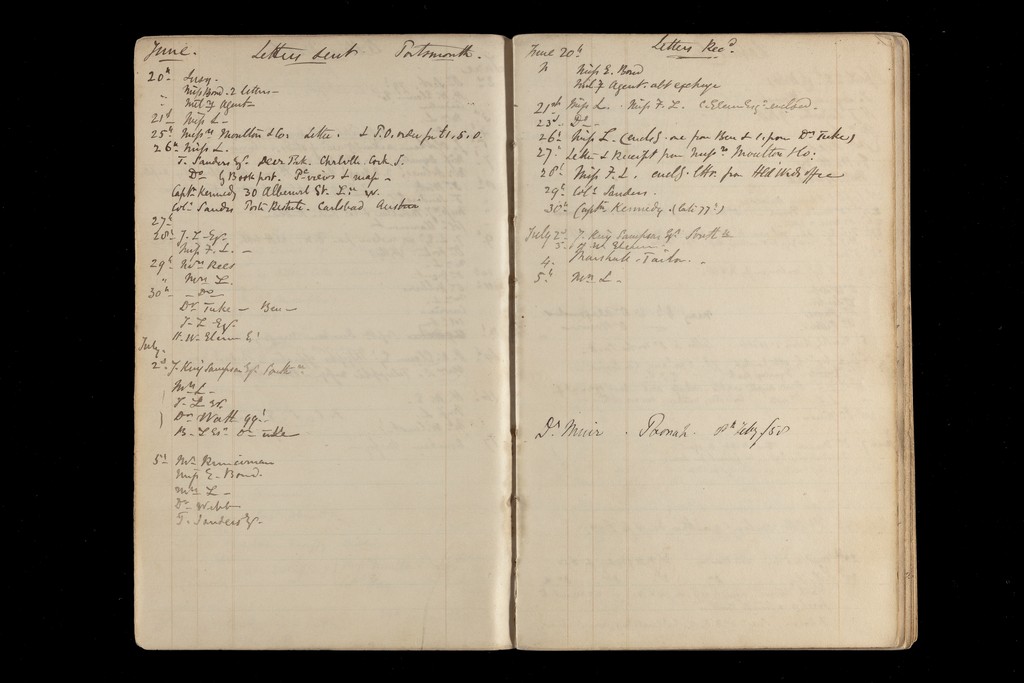 June. Letters sent Portsmouth.
20th Susy.
" Miss Bond. 2 letters -
" Mily Agent -
21st Miss L -
25th Messrs Moulton & Co. Letter. & P.O. order for £1.5.0.
26th Miss L.
T. Sanders Esq. Deer Park. Cork
Do Bookpost. & map -
Captn Kennedy 30 Albemarle St. Ln W.
Coln Sanders Poste Restante. Carlsbad Austria
27th
28th J. L Esq.
Miss F. L. -
29th Mrs Rees
" Mrs L.
30th - Do
Dr Tuke - Ben -
J. L Esq.
H. W.
July.
2d J. King Sampson Esq.
Mrs L -
J. L
Dr Watt 99th
B. L Dr Tuke
5th Mr
Miss E. Bond.
Mrs L -
Dr Webb
T. Sanders Esq.
June 20th Letters Recd.
" Miss E. Bond
Mily Agent.
21st Miss L. Miss F. L. enclosd.
23d Do
26th Miss L. (enclg. one from Ben & 1. from Dr Tuke)
27th Letter & Receipt from Messrs Moulton & Co:
28th Miss F. L. enclg. lttr. from
29th Coln Sanders.
30th Captn Kennedy. (late 77th)
July 2d J. King Sampson Esq.
3. H. W.
4. Marshall - Tailor. -
5th Mrs L -
Dr Muir . Poonah . 8th July /58